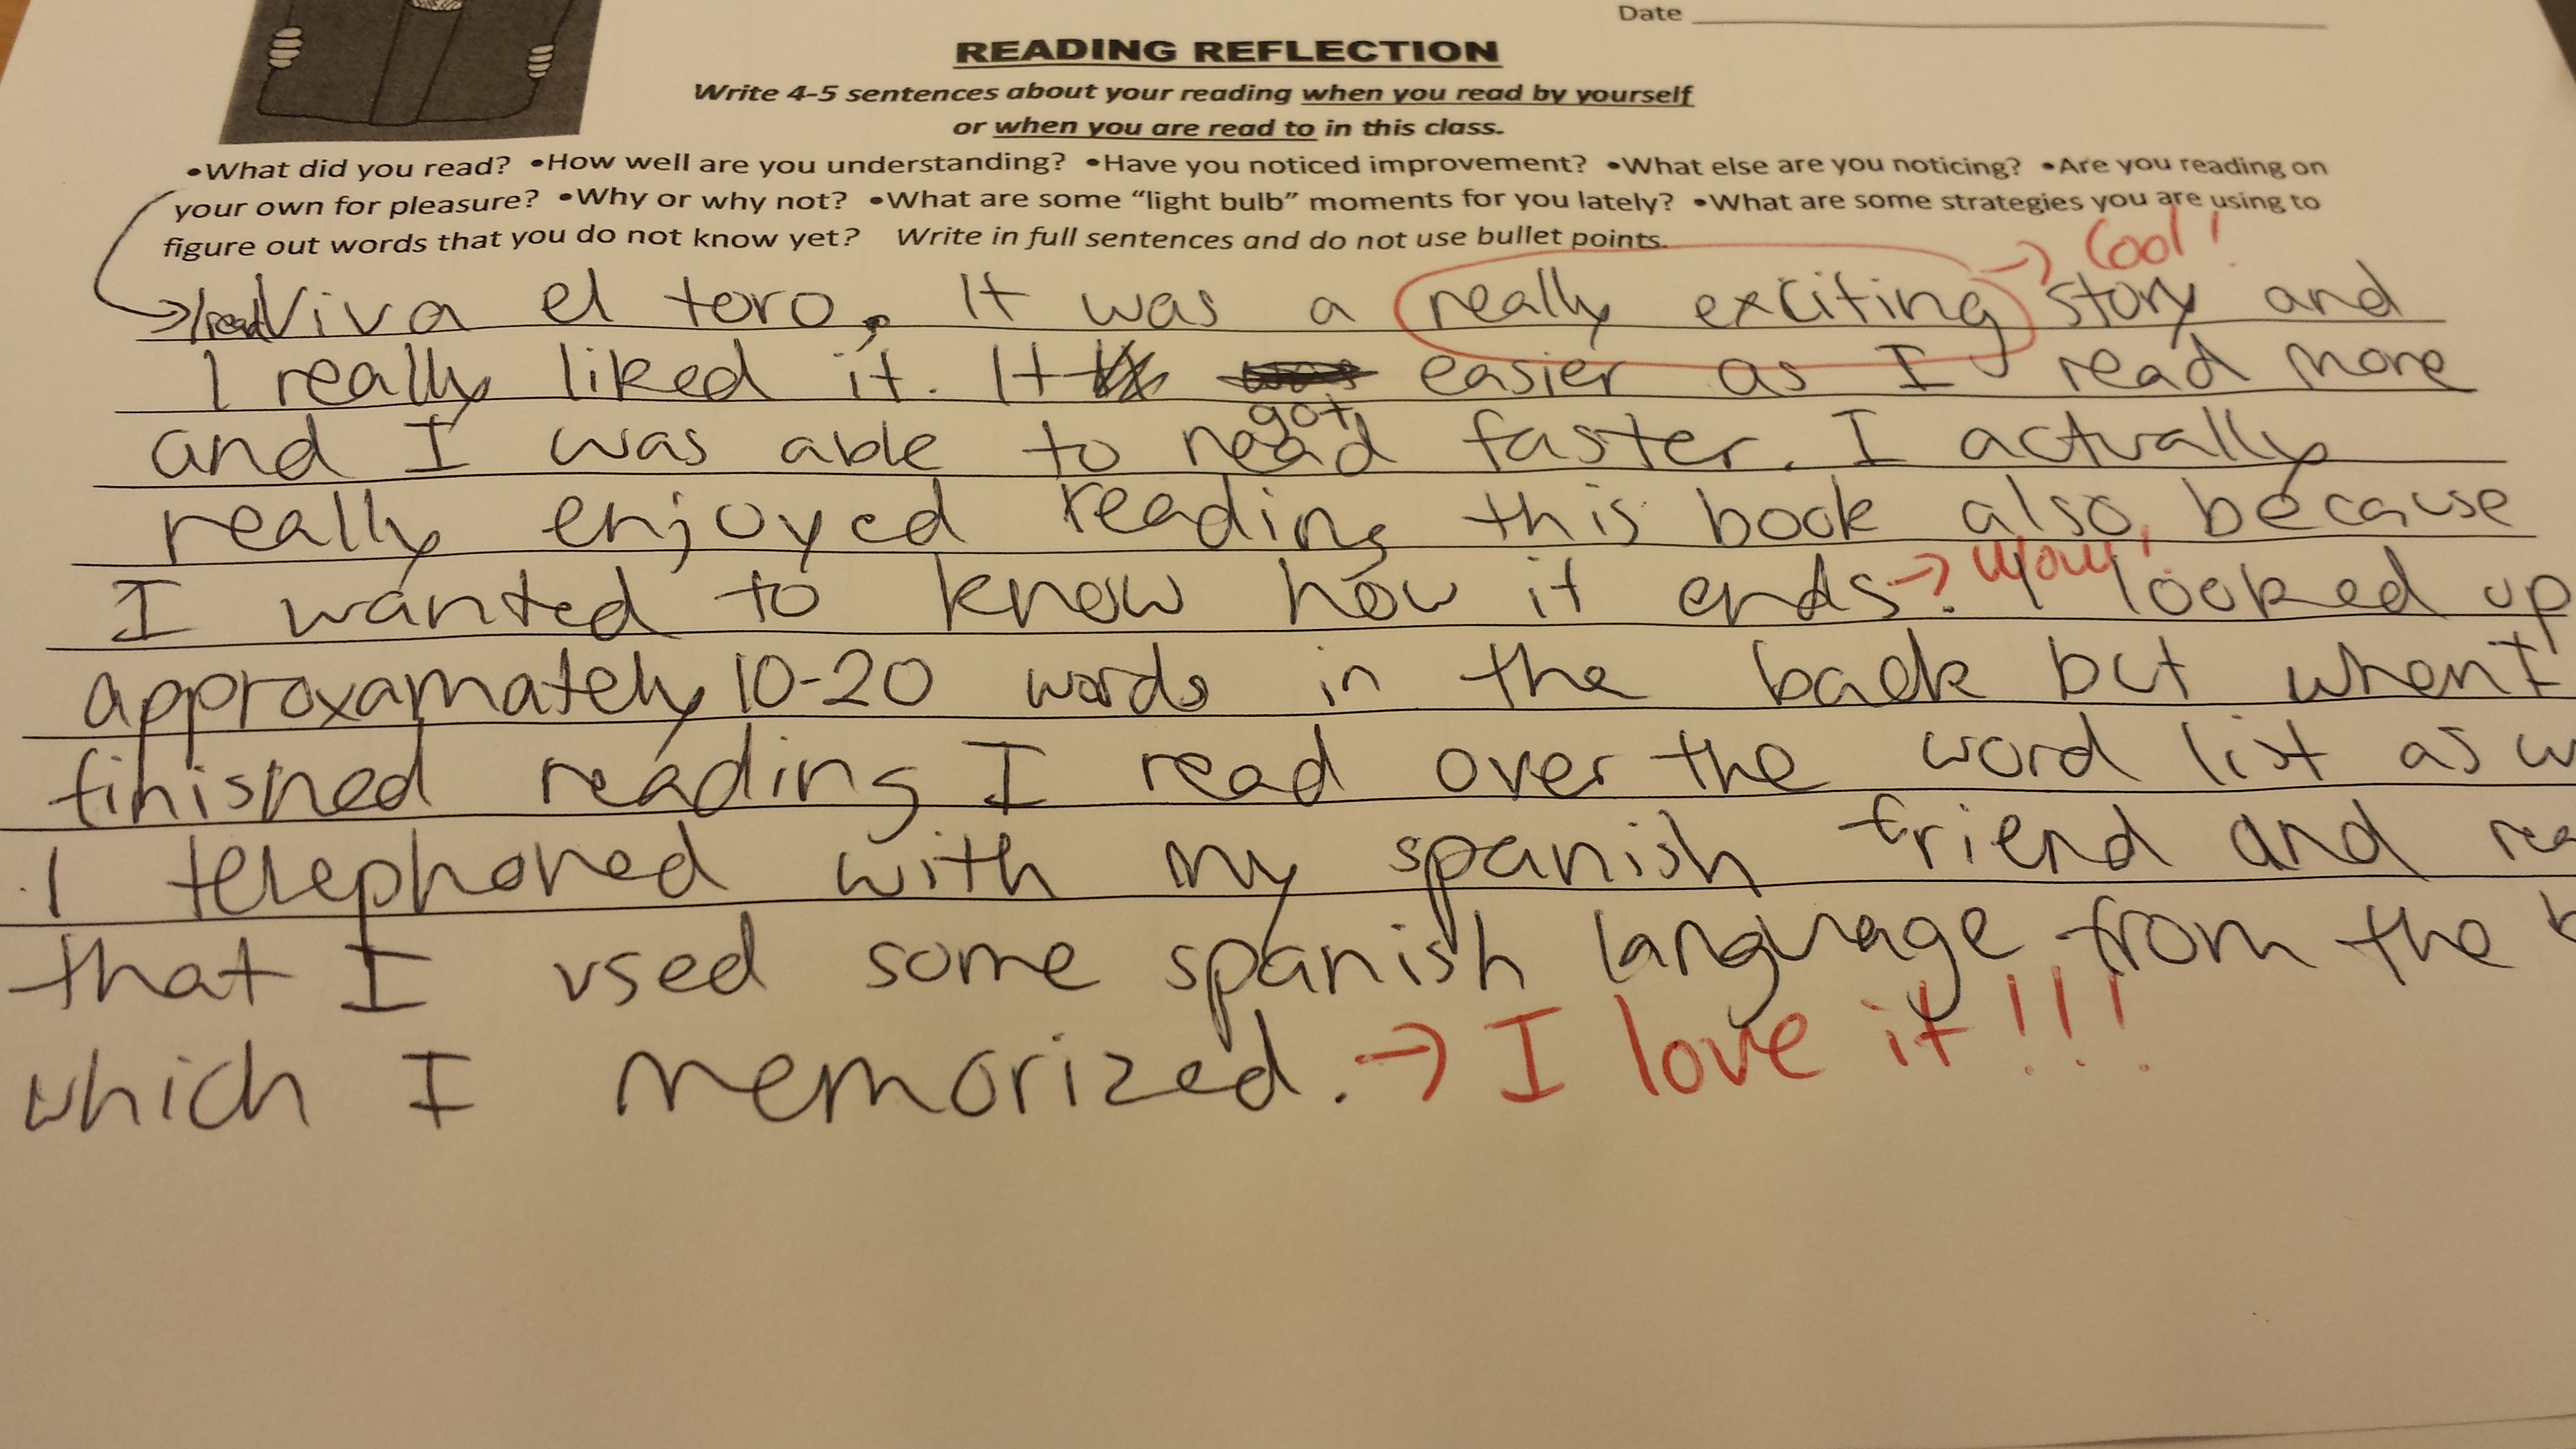 Date
READING REFLECTION
Write 4-5 sentences about your reading when you read by yourself
or when you are read to in this class.
•What did you read? •How well are you understanding? •Have you noticed improvement? •What else are you noticing? •Are you reading on
your own for pleasure? •Why or why not? •What are some “light bulb” moments for you lately? •What are some strategies you are using to
figure out words that you do not know yet? Write in full sentences and do not use bullet points.
→ Cool!
→ I read Viva el toro. It was a really exciting story and
I really liked it. It got easier as I read more
and I was able to read faster. I actually
really enjoyed reading this book also, because
I wanted to know how it ends. → Wow! I looked up
approxamately 10-20 words in the back but when I
finished reading I read over the word list as w
I telephoned with my spanish friend and rea
that I used some spanish language from the b
which I memorized. → I love it!!!